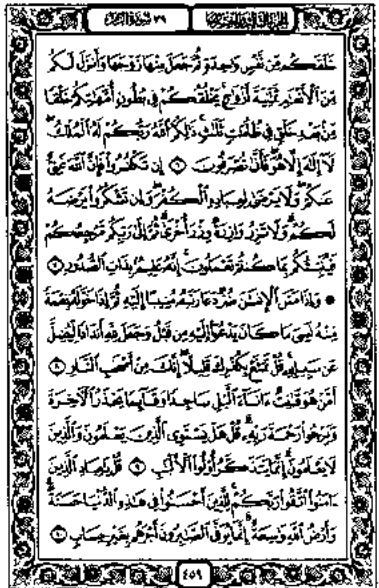 الجزء الثالث والعشرون ٣٩ سورة الزمر
خَلَقَكُم مِّن نَّفْسٍ وَٰحِدَةٍ ثُمَّ جَعَلَ مِنْهَا زَوْجَهَا وَأَنزَلَ لَكُم
مِّنَ ٱلْأَنْعَٰمِ ثَمَٰنِيَةَ أَزْوَٰجٍ يَخْلُقُكُمْ فِى بُطُونِ أُمَّهَٰتِكُمْ خَلْقًا
مِّنۢ بَعْدِ خَلْقٍ فِى ظُلُمَٰتٍ ثَلَٰثٍ ذَٰلِكُمُ ٱللَّهُ رَبُّكُمْ لَهُ ٱلْمُلْكُ
لَآ إِلَٰهَ إِلَّا هُوَ فَأَنَّىٰ تُصْرَفُونَ ٦ إِن تَكْفُرُوا۟ فَإِنَّ ٱللَّهَ غَنِىٌّ
عَنكُمْ وَلَا يَرْضَىٰ لِعِبَادِهِ ٱلْكُفْرَ وَإِن تَشْكُرُوا۟ يَرْضَهُ
لَكُمْ وَلَا تَزِرُ وَازِرَةٌ وِزْرَ أُخْرَىٰ ثُمَّ إِلَىٰ رَبِّكُم مَّرْجِعُكُمْ
فَيُنَبِّئُكُم بِمَا كُنتُمْ تَعْمَلُونَ إِنَّهُۥ عَلِيمٌۢ بِذَاتِ ٱلصُّدُورِ ٧
۞ وَإِذَا مَسَّ ٱلْإِنسَٰنَ ضُرٌّ دَعَا رَبَّهُۥ مُنِيبًا إِلَيْهِ ثُمَّ إِذَا خَوَّلَهُۥ نِعْمَةً
مِّنْهُ نَسِىَ مَا كَانَ يَدْعُوٓا۟ إِلَيْهِ مِن قَبْلُ وَجَعَلَ لِلَّهِ أَندَادًا لِّيُضِلَّ
عَن سَبِيلِهِۦ قُلْ تَمَتَّعْ بِكُفْرِكَ قَلِيلًا إِنَّكَ مِنْ أَصْحَٰبِ ٱلنَّارِ ٨
أَمَّنْ هُوَ قَٰنِتٌ ءَانَآءَ ٱلَّيْلِ سَاجِدًا وَقَآئِمًا يَحْذَرُ ٱلْءَاخِرَةَ
وَيَرْجُوا۟ رَحْمَةَ رَبِّهِۦ قُلْ هَلْ يَسْتَوِى ٱلَّذِينَ يَعْلَمُونَ وَٱلَّذِينَ
لَا يَعْلَمُونَ إِنَّمَا يَتَذَكَّرُ أُو۟لُوا۟ ٱلْأَلْبَٰبِ ٩ قُلْ يَٰعِبَادِ ٱلَّذِينَ
ءَامَنُوا۟ ٱتَّقُوا۟ رَبَّكُمْ لِلَّذِينَ أَحْسَنُوا۟ فِى هَٰذِهِ ٱلدُّنْيَا حَسَنَةٌ
وَأَرْضُ ٱللَّهِ وَٰسِعَةٌ إِنَّمَا يُوَفَّى ٱلصَّٰبِرُونَ أَجْرَهُم بِغَيْرِ حِسَابٍ ١٠
٤٥٩